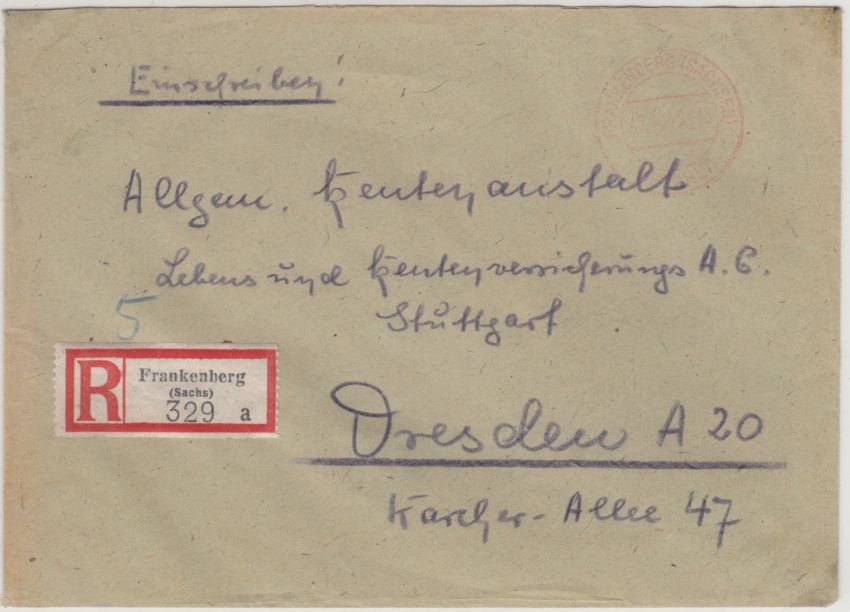 Einschreiben!
FRANKENBERG (SACHSEN)
Allgem. Rentenanstalt
Lebens und Rentenversicherungs A. G.
Stuttgart
5
R
Frankenberg
(Sachs)
329 a
Dresden A 20
Karcher-Allee 47